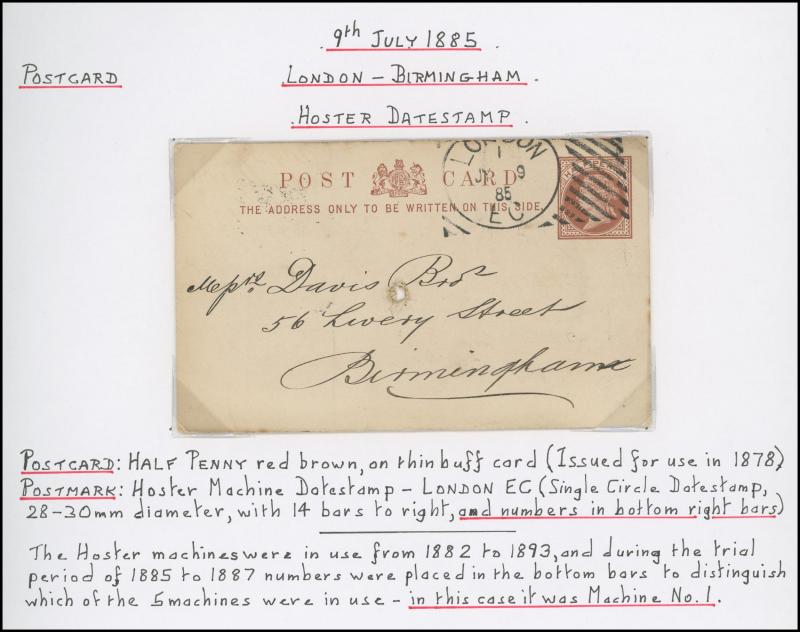 9th July 1885.
Postcard
London – Birmingham.
Hoster Datestamp.
LONDON
1
JY 9
85
EC
POST CARD
THE ADDRESS ONLY TO BE WRITTEN ON THIS SIDE.
Messrs. Davis Bros
56 Livery Street
Birmingham
Postcard: Half Penny red brown, on thin buff card (Issued for use in 1878)
Postmark: Hoster Machine Datestamp – London EC (Single Circle Datestamp,
28–30mm diameter, with 14 bars to right, and numbers in bottom right bars)
The Hoster machines were in use from 1882 to 1893, and during the trial
period of 1885 to 1887 numbers were placed in the bottom bars to distinguish
which of the 5 machines were in use – in this case it was Machine No. 1.